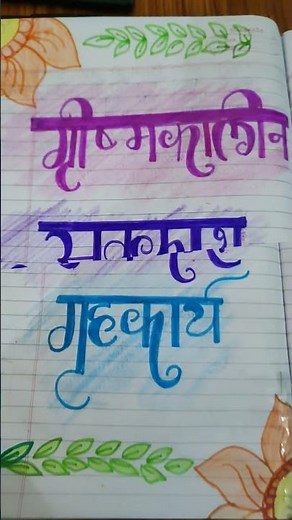 ग्रीष्मकालीन
अवकाश
गृहकार्य